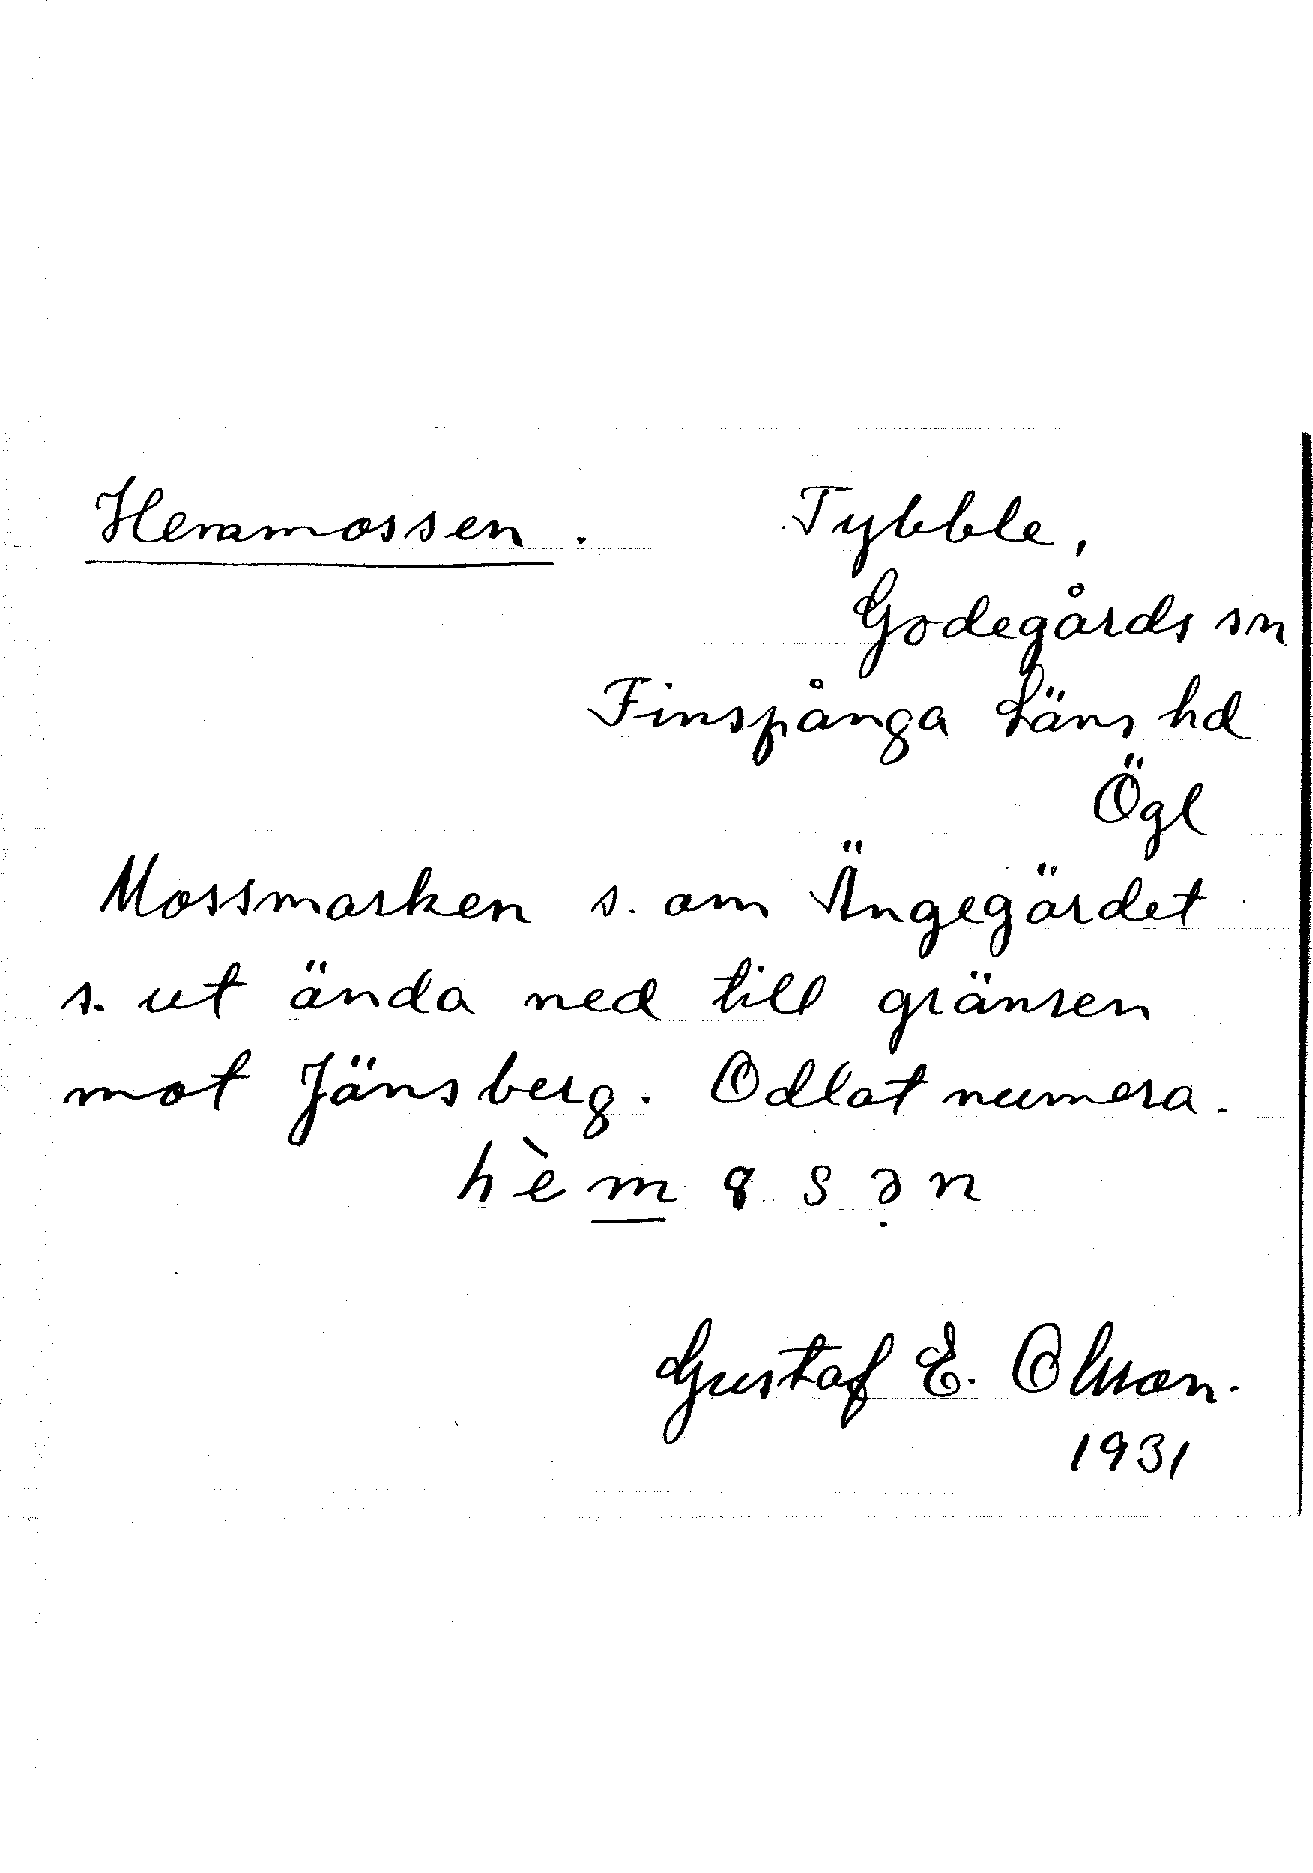 Hemmossen. Tybble,
Godegårds sn
Finspånga läns hd
Ögl
Mossmarken s. om Ängegärdet
s. ut ända ned till gränsen
mot Jänsberg. Odlat numera.
hèmɷsən
Gustaf E. Olsson.
1931